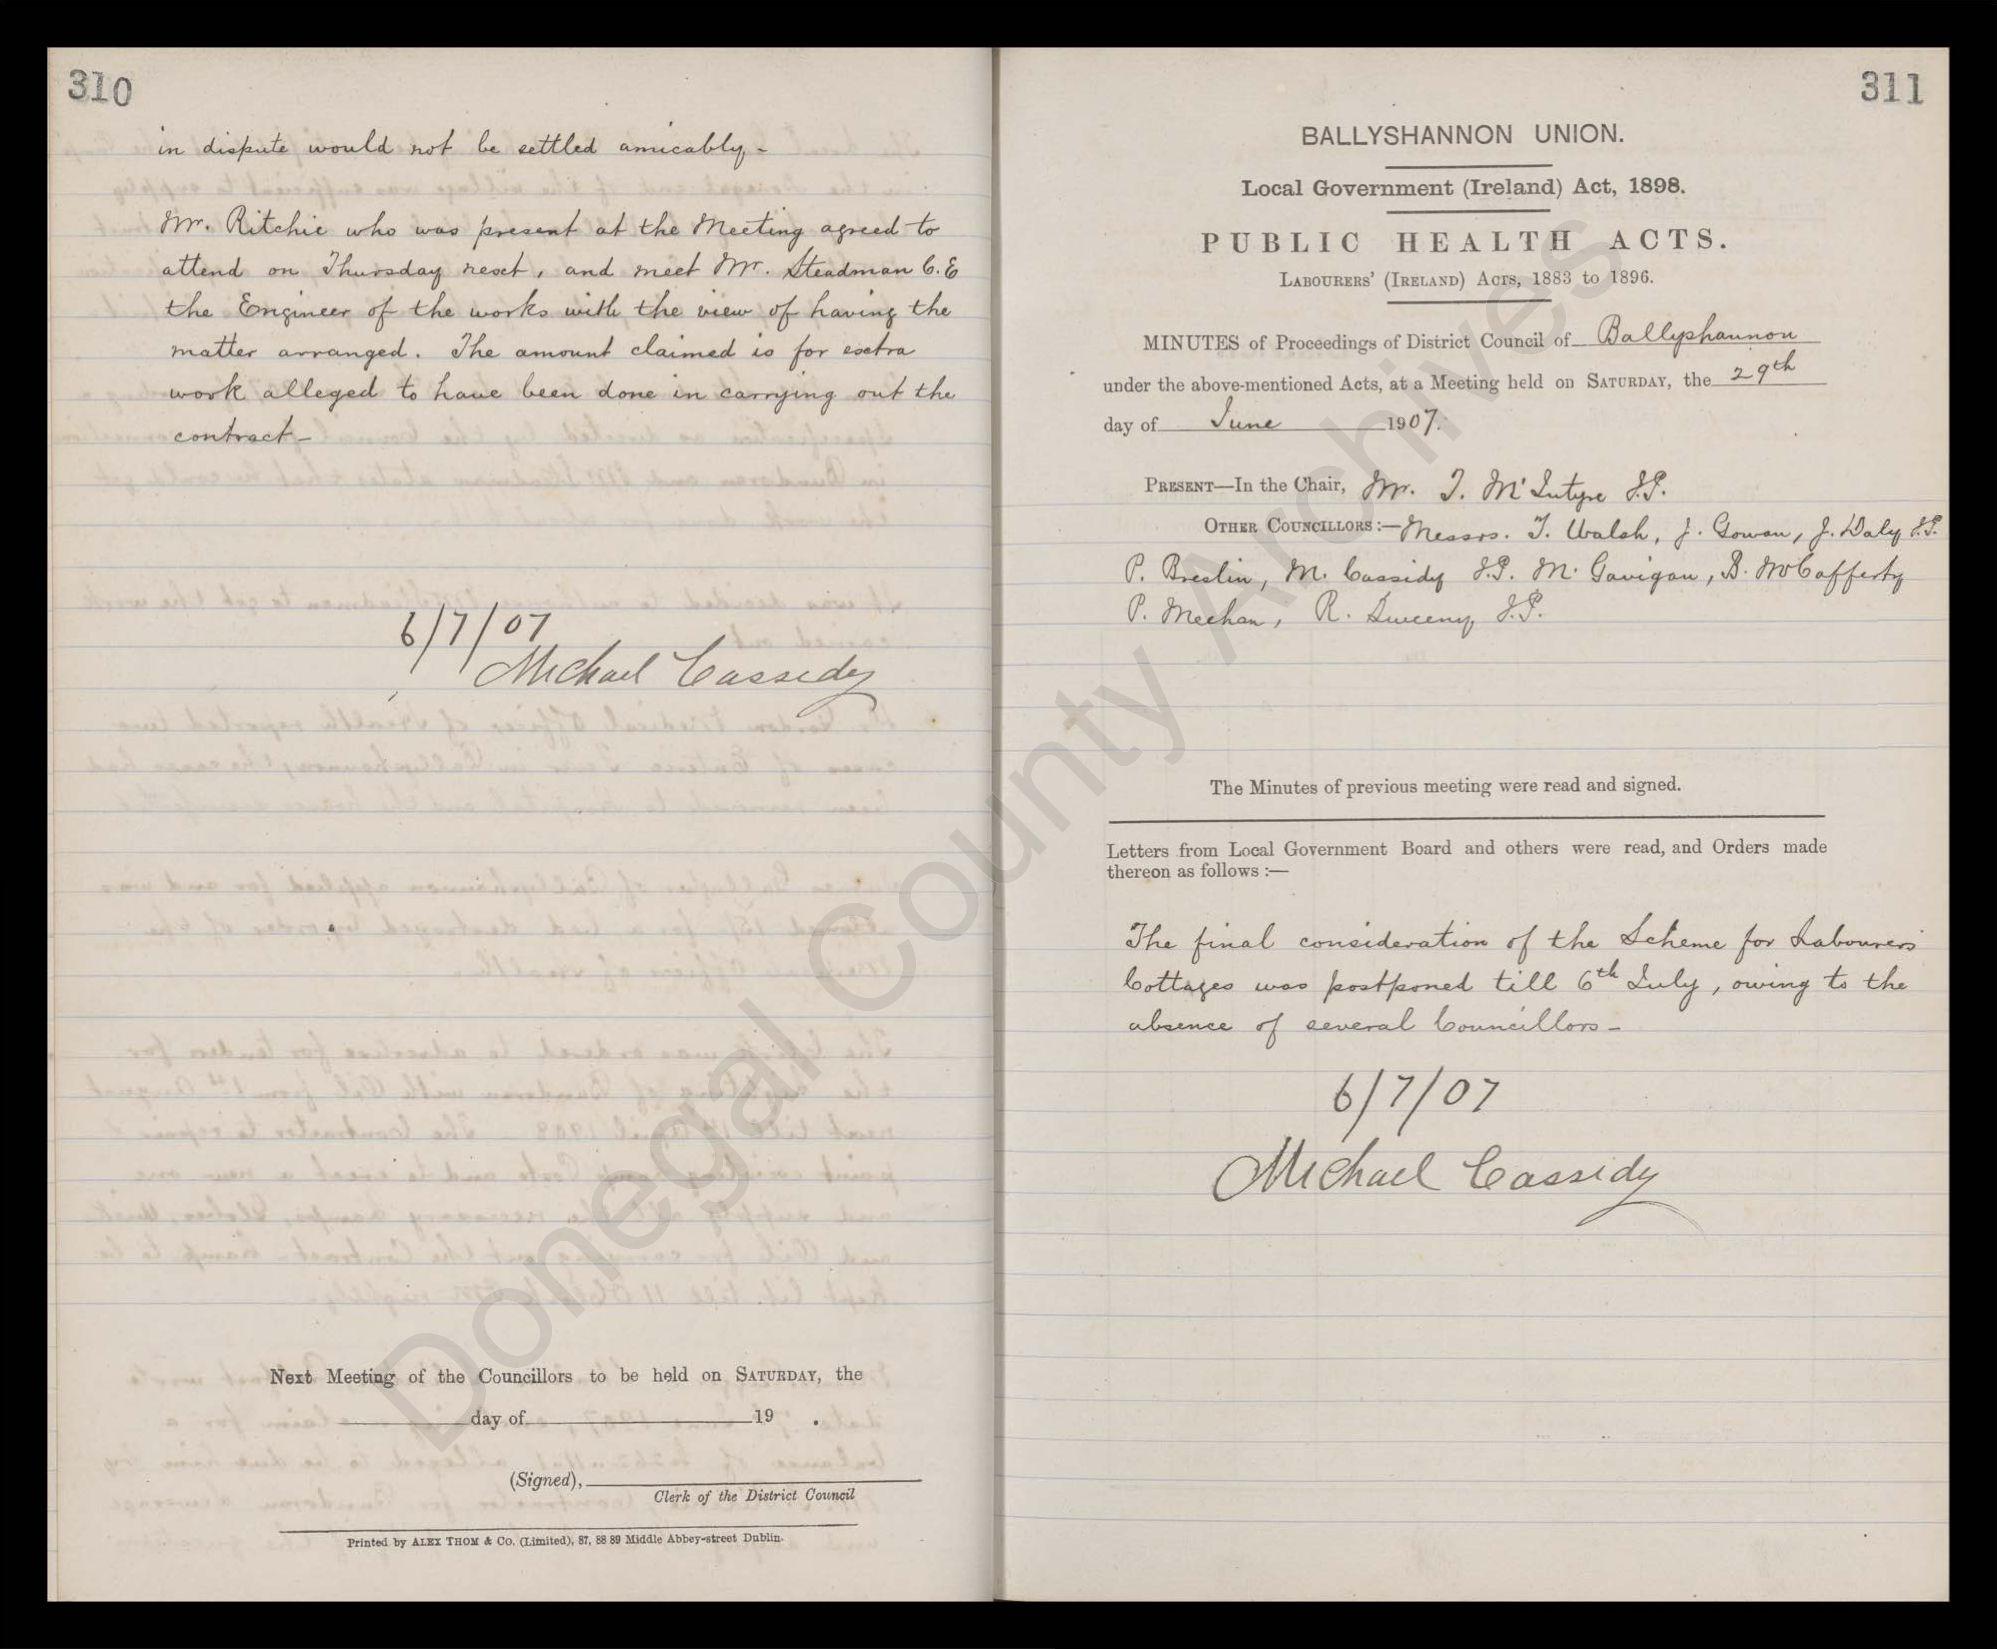 310
in dispute would not be settled amicably -
Mr. Ritchie who was present at the Meeting agreed to
attend on Thursday next, and meet Mr. Steadman C.E
the Engineer of the works with the view of having the
matter arranged. The amount claimed is for extra
work alleged to have been done in carrying out the
contract -
6/7/07
Michael Cassidy
Next Meeting of the Councillors to be held on SATURDAY, the
day of 19 .
(Signed),
Clerk of the District Council
Printed by ALEX THOM & Co. (Limited), 87, 88 89 Middle Abbey-street Dublin.
311
BALLYSHANNON UNION.
Local Government (Ireland) Act, 1898.
PUBLIC HEALTH ACTS.
LABOURERS' (IRELAND) ACTS, 1883 to 1896.
MINUTES of Proceedings of District Council of Ballyshannon
under the above-mentioned Acts, at a Meeting held on SATURDAY, the 29th
day of June 1907.
PRESENT—In the Chair, Mr. T. McIntyre J.P.
OTHER COUNCILLORS :— Messrs. T. Walsh, J. Gowan, J. Daly J.P.
P. Breslin, M. Cassidy J.P. M. Gavigan, B. McCafferty
P. Meehan, R. Sweeny J.P.
The Minutes of previous meeting were read and signed.
Letters from Local Government Board and others were read, and Orders made
thereon as follows :—
The final consideration of the Scheme for Labourers
Cottages was postponed till 6th July, owing to the
absence of several Councillors -
6/7/07
Michael Cassidy
Donegal County Archives